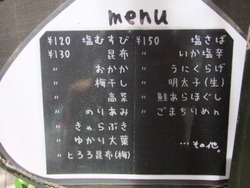 menu
¥120 塩むすび
¥130 昆布
〃 おかか
〃 梅干し
〃 高菜
〃 のりあみ
〃 きゃらぶき
〃 ゆかり大葉
〃 とろろ昆布(梅)
¥150 塩さば
〃 いか塩辛
〃 うにくらげ
〃 明太子(生)
〃 鮭あらほぐし
〃 ごまちりめn
…その他。